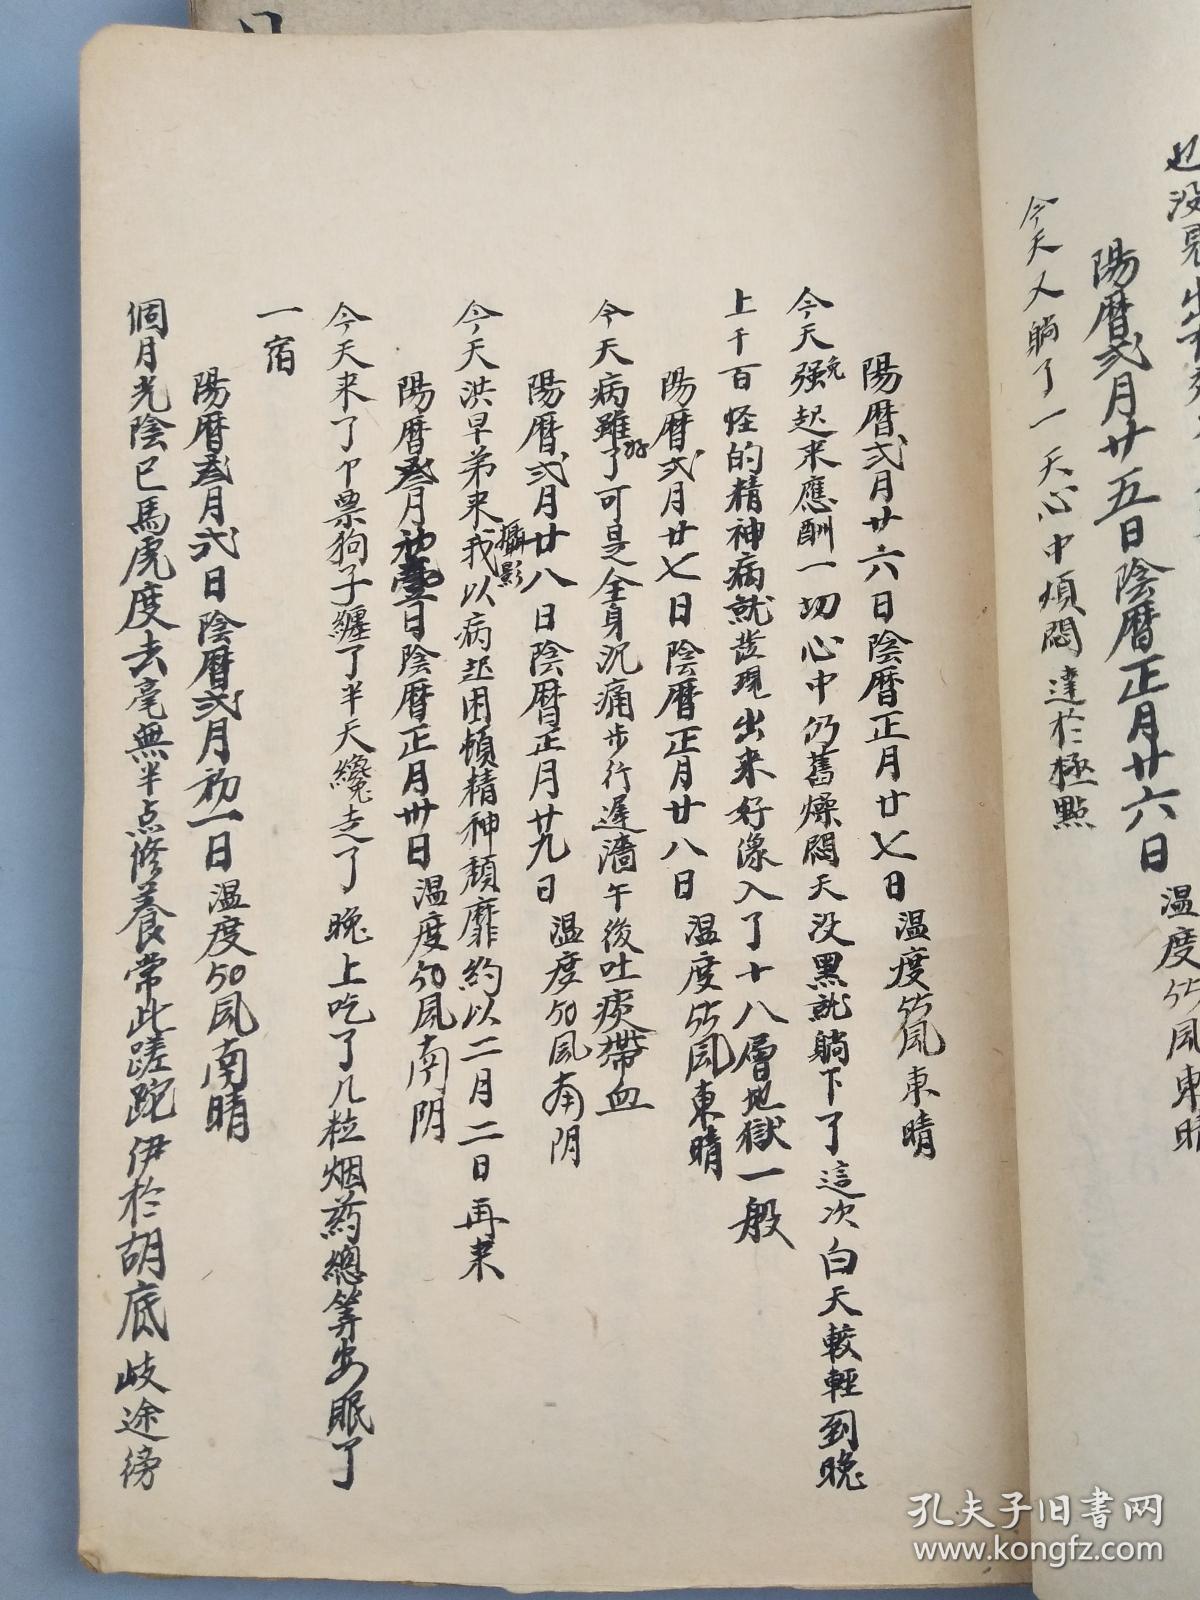 也没
陽曆弍月廿五日陰曆正月廿六日 温度55風東晴
今天又躺了一天心中煩悶達於極點
陽曆弍月廿六日陰曆正月廿七日温度55風東晴
今天勉强起来應酬一切心中仍舊燥悶天没黑就躺下了這次白天較輕到晚
上千百怪的精神病就发現出来好像入了十八層地獄一般
陽曆弍月廿七日陰曆正月廿八日 温度55風東晴
今天病雖好了可是全身沉痛步行遲濇午後吐痰帶血
陽曆弍月廿八日陰曆正月廿九日 温度50風南阴
今天洪早弟来攝影我以病起困頓精神頽靡約以二月二日再来
陽曆叁月初壹日陰曆正月卅日温度50風南阴
今天来了卩票狗子纏了半天纔走了晚上吃了几粒烟药總算安眠了
一宿
陽曆叁月弍日陰曆弍月初一日温度50風南晴
個月光陰已馬虎度去毫無半点修養常此蹉跎伊於胡底歧途徬
孔夫子旧书网
www.kongfz.com